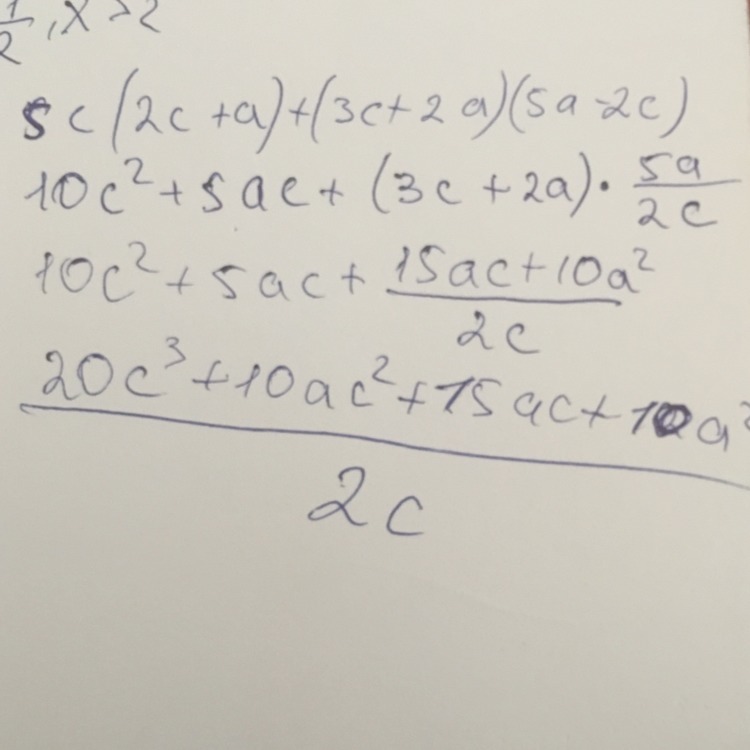 1/2, x > 2
5c(2c+a)+(3c+2a)(5a-2c)
10c²+5ac+(3c+2a)·5a/2c
10c²+5ac+15ac+10a²/2c
20c³+10ac²+15ac+10a²/2c